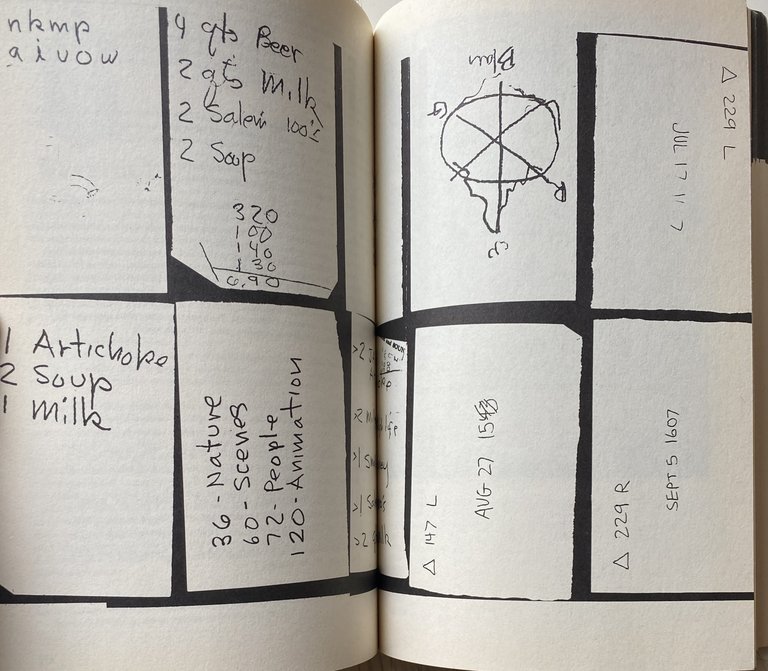 nkmp
aivow
4 qts Beer
2 qts Milk
2 Salem 100's
2 Soup
320
100
140
130
6.90
1 Artichoke
2 Soup
1 Milk
36 - Nature
60 - Scenes
72 - People
120 - Animation
>2
>2
>1
>1
>2
G
R
△ 229 L
JUL 17 11 7
△ 147 L
AUG 27
△ 229 R
SEPT 5 1607